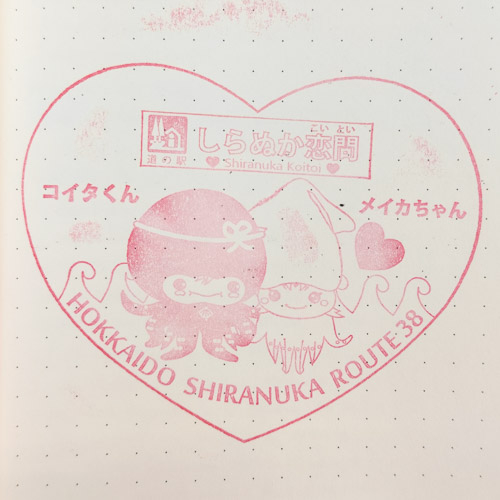 こいとい
しらぬか恋問
道の駅
Shiranuka Koitoi
コイタくん
メイカちゃん
HOKKAIDO SHIRANUKA ROUTE 38